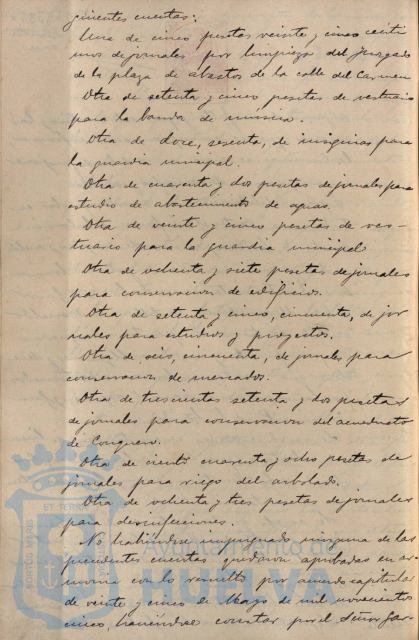 guientes cuentas:
Una de cinco pesetas veinte y cinco cénti
mos de jornales por limpieza del Juzgado
de la plaza de abastos de la calle del Carmen
Otra de setenta y cinco pesetas de vestuario
para la banda de música.
Otra de doce, sesenta, de insignias para
la guardia municipal.
Otra de cuarenta y dos pesetas de jornales para
estudio de abastecimiento de aguas.
Otra de veinte y cinco pesetas de ves-
tuario para la guardia municipal
Otra de ochenta y siete pesetas de jornales
para conservacion de edificios.
Otra de setenta y cinco, cincuenta, de jor
nales para estudios y proyectos.
Otra de seis, cincuenta, de jornales para
conservacion de mercados.
Otra de trescientas setenta y dos pesetas
de jornales para conservacion del acueducto
de Conquero.
Otra de ciento cuarenta y ocho pesetas de
jornales para riego del arbolado.
Otra de ochenta y tres pesetas de jornales
para desinfecciones.
No habiéndose impugnado ninguna de las
precedentes cuentas quedaron aprobadas en ar
monia con lo resuelto por acuerdo capitular
de veinte y cinco de Mayo de mil novecientos
cinco, haciéndose constar por el Señor Gar
Ayuntamiento de
HUELVA